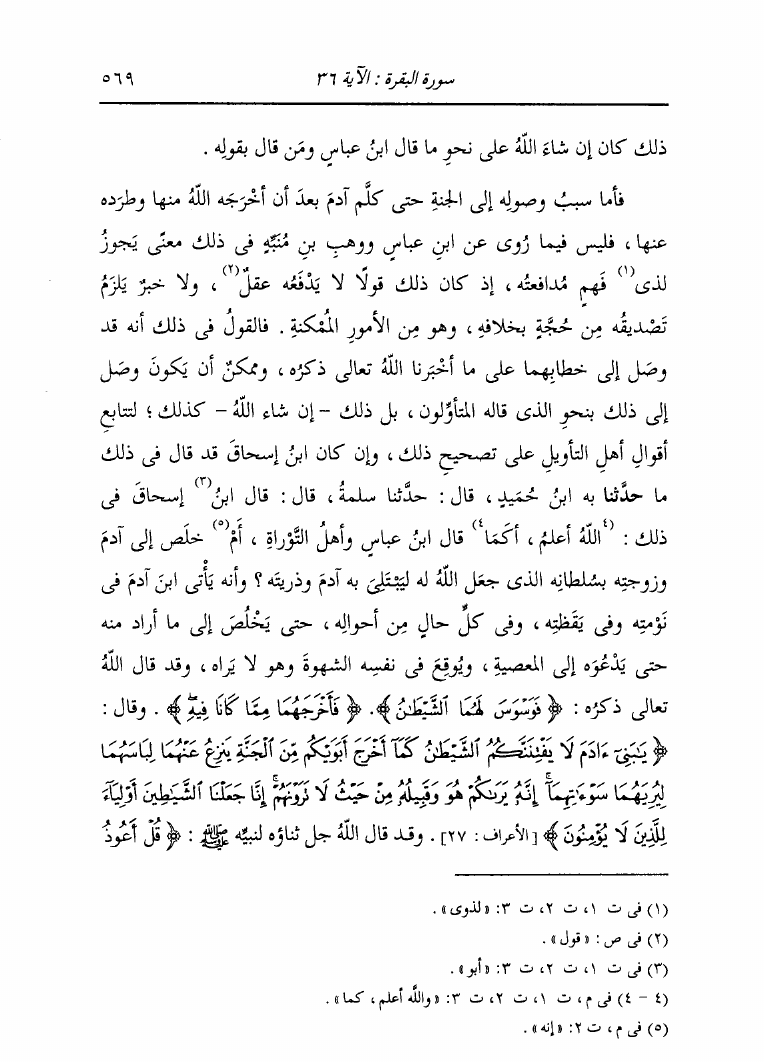 سورة البقرة : الآية ٣٦ ٥٦٩
ذلك كان إن شاءَ اللَّهُ على نحوِ ما قال ابنُ عباسٍ ومَن قال بقولِه .
فأما سببُ وصولِه إلى الجنةِ حتى كلَّم آدمَ بعدَ أن أخْرَجَه اللَّهُ منها وطرَده
عنها ، فليس فيما رُوى عن ابنِ عباسٍ ووهبِ بنِ مُنَبِّهٍ فى ذلك معنًى يَجوزُ
لذى(١) فَهمٍ مُدافعتُه ، إذ كان ذلك قولًا لا يَدْفَعُه عقلٌ(٢) ، ولا خبرٌ يَلزَمُ
تَصْديقُه مِن حُجَّةٍ بخلافِهِ ، وهو مِن الأمورِ المُمْكنةِ . فالقولُ فى ذلك أنه قد
وصَل إلى خطابِهما على ما أخْبَرنا اللَّهُ تعالى ذكرُه ، وممكنٌ أن يَكونَ وصَل
إلى ذلك بنحوِ الذى قاله المتأوِّلون ، بل ذلك - إن شاء اللَّهُ - كذلك ؛ لتتابعِ
أقوالِ أهلِ التأويلِ على تصحيحِ ذلك ، وإن كان ابنُ إسحاقَ قد قال فى ذلك
ما حدَّثنا به ابنُ حُمَيدٍ ، قال : حدَّثنا سلمةُ ، قال : قال ابنُ(٣) إسحاقَ فى
ذلك : (٤اللَّهُ أعلمُ ، أكَمَا٤) قال ابنُ عباسٍ وأهلُ التَّوْراةِ ، أَمْ(٥) خلَص إلى آدمَ
وزوجتِه بسُلطانِه الذى جعَل اللَّهُ له ليَبْتَلِىَ به آدمَ وذريتَه ؟ وأنه يَأْتى ابنَ آدمَ فى
نَوْمتِه وفى يَقَظتِه ، وفى كلِّ حالٍ مِن أحوالِه ، حتى يَخْلُصَ إلى ما أراد منه
حتى يَدْعُوَه إلى المعصيةِ ، ويُوقِعَ فى نفسِه الشهوةَ وهو لا يَراه ، وقد قال اللَّهُ
تعالى ذكرُه : ﴿ فَوَسْوَسَ لَهُمَا ٱلشَّيْطَٰنُ ﴾ . ﴿ فَأَخْرَجَهُمَا مِمَّا كَانَا فِيهِ ﴾ . وقال :
﴿ يَٰبَنِىٓ ءَادَمَ لَا يَفْتِنَنَّكُمُ ٱلشَّيْطَٰنُ كَمَآ أَخْرَجَ أَبَوَيْكُم مِّنَ ٱلْجَنَّةِ يَنزِعُ عَنْهُمَا لِبَاسَهُمَا
لِيُرِيَهُمَا سَوْءَٰتِهِمَآ إِنَّهُۥ يَرَىٰكُمْ هُوَ وَقَبِيلُهُۥ مِنْ حَيْثُ لَا تَرَوْنَهُمْ إِنَّا جَعَلْنَا ٱلشَّيَٰطِينَ أَوْلِيَآءَ
لِلَّذِينَ لَا يُؤْمِنُونَ ﴾ [ الأعراف : ٢٧ ] . وقد قال اللَّهُ جل ثناؤه لنبيِّه ﷺ : ﴿ قُلْ أَعُوذُ
(١) فى ت ١، ت ٢، ت ٣: «لذوى» .
(٢) فى ص : «قول» .
(٣) فى ت ١، ت ٢، ت ٣: «أبو» .
(٤ - ٤) فى م، ت ١، ت ٢، ت ٣: «واللَّه أعلم ، كما» .
(٥) فى م، ت ٢: «إنه» .